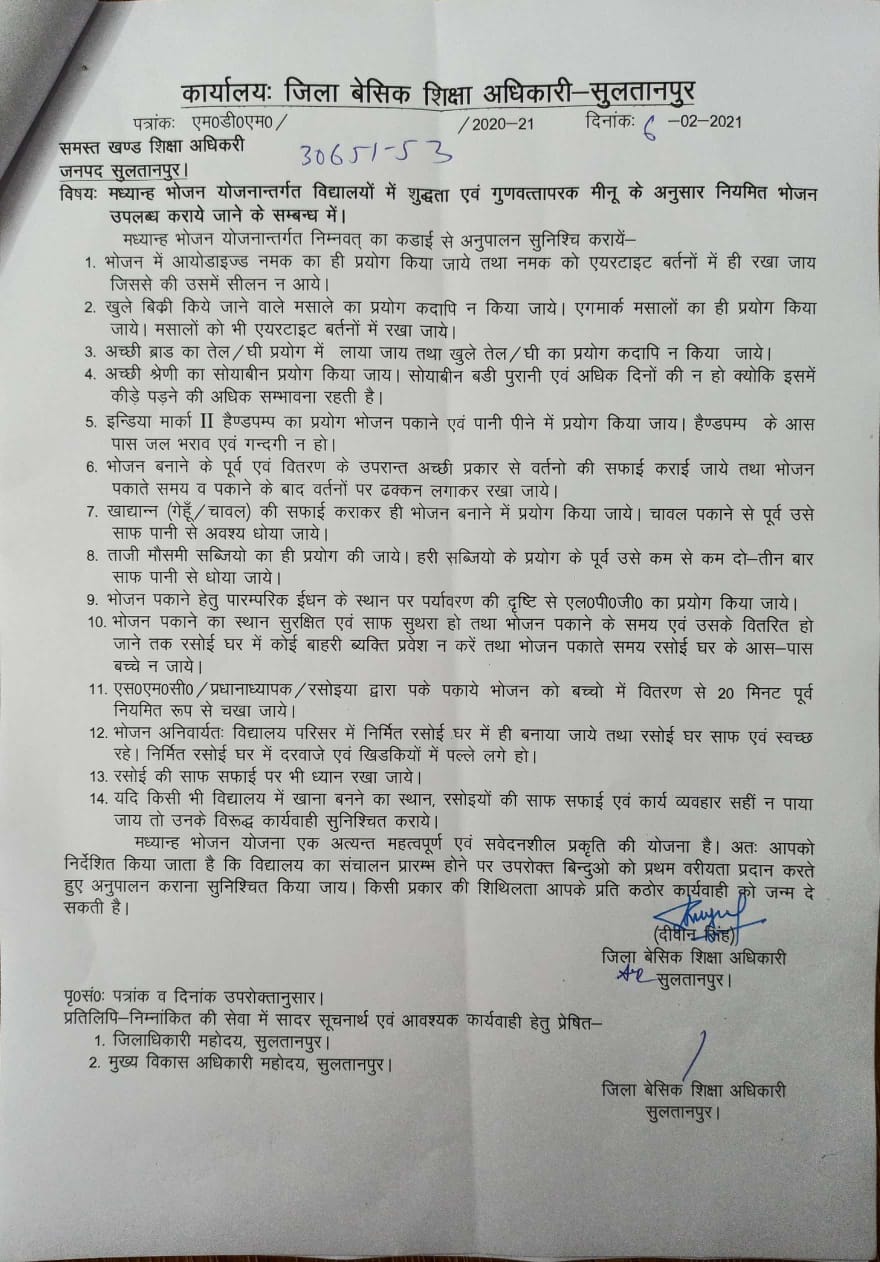 कार्यालयः जिला बेसिक शिक्षा अधिकारी–सुलतानपुर
पत्रांकः एम0डी0एम0/ /2020–21 दिनांकः 6 –02–2021
समस्त खण्ड शिक्षा अधिकरी 30651-53
जनपद सुलतानपुर।
विषयः मध्यान्ह भोजन योजनान्तर्गत विद्यालयों में शुद्धता एवं गुणवत्तापरक मीनू के अनुसार नियमित भोजन
उपलब्ध कराये जाने के सम्बन्ध में।
मध्यान्ह भोजन योजनान्तर्गत निम्नवत् का कडाई से अनुपालन सुनिश्चि करायें–
1. भोजन में आयोडाइज्ड नमक का ही प्रयोग किया जाये तथा नमक को एयरटाइट बर्तनों में ही रखा जाय
जिससे की उसमें सीलन न आये।
2. खुले बिकी किये जाने वाले मसाले का प्रयोग कदापि न किया जाये। एगमार्क मसालों का ही प्रयोग किया
जाये। मसालों को भी एयरटाइट बर्तनों में रखा जाये।
3. अच्छी ब्राड का तेल/घी प्रयोग में लाया जाय तथा खुले तेल/घी का प्रयोग कदापि न किया जाये।
4. अच्छी श्रेणी का सोयाबीन प्रयोग किया जाय। सोयाबीन बडी पुरानी एवं अधिक दिनों की न हो क्योकि इसमें
कीड़े पड़ने की अधिक सम्भावना रहती है।
5. इन्डिया मार्का II हैण्डपम्प का प्रयोग भोजन पकाने एवं पानी पीने में प्रयोग किया जाय। हैण्डपम्प के आस
पास जल भराव एवं गन्दगी न हो।
6. भोजन बनाने के पूर्व एवं वितरण के उपरान्त अच्छी प्रकार से वर्तनो की सफाई कराई जाये तथा भोजन
पकाते समय व पकाने के बाद वर्तनों पर ढक्कन लगाकर रखा जाये।
7. खाद्यान्न (गेहूँ/चावल) की सफाई कराकर ही भोजन बनाने में प्रयोग किया जाये। चावल पकाने से पूर्व उसे
साफ पानी से अवश्य धोया जाये।
8. ताजी मौसमी सब्जियो का ही प्रयोग की जाये। हरी सब्जियो के प्रयोग के पूर्व उसे कम से कम दो–तीन बार
साफ पानी से धोया जाये।
9. भोजन पकाने हेतु पारम्परिक ईधन के स्थान पर पर्यावरण की दृष्टि से एल0पी0जी0 का प्रयोग किया जाये।
10. भोजन पकाने का स्थान सुरक्षित एवं साफ सुथरा हो तथा भोजन पकाने के समय एवं उसके वितरित हो
जाने तक रसोई घर में कोई बाहरी ब्यक्ति प्रवेश न करें तथा भोजन पकाते समय रसोई घर के आस–पास
बच्चे न जाये।
11. एस0एम0सी0/प्रधानाध्यापक/रसोइया द्वारा पके पकाये भोजन को बच्चो में वितरण से 20 मिनट पूर्व
नियमित रूप से चखा जाये।
12. भोजन अनिवार्यतः विद्यालय परिसर में निर्मित रसोई घर में ही बनाया जाये तथा रसोई घर साफ एवं स्वच्छ
रहे। निर्मित रसोई घर में दरवाजे एवं खिडकियों में पल्ले लगे हो।
13. रसोई की साफ सफाई पर भी ध्यान रखा जाये।
14. यदि किसी भी विद्यालय में खाना बनने का स्थान, रसोइयों की साफ सफाई एवं कार्य व्यवहार सहीं न पाया
जाय तो उनके विरूद्ध कार्यवाही सुनिश्चित कराये।
मध्यान्ह भोजन योजना एक अत्यन्त महत्वपूर्ण एवं सवेदनशील प्रकृति की योजना है। अतः आपको
निर्देशित किया जाता है कि विद्यालय का संचालन प्रारम्भ होने पर उपरोक्त बिन्दुओ को प्रथम वरीयता प्रदान करते
हुए अनुपालन कराना सुनिश्चित किया जाय। किसी प्रकार की शिथिलता आपके प्रति कठोर कार्यवाही को जन्म दे
सकती है।
(दीवान सिंह)
जिला बेसिक शिक्षा अधिकारी
सुलतानपुर।
पृ0सं0ः पत्रांक व दिनांक उपरोक्तानुसार।
प्रतिलिपि–निम्नांकित की सेवा में सादर सूचनार्थ एवं आवश्यक कार्यवाही हेतु प्रेषित–
1. जिलाधिकारी महोदय, सुलतानपुर।
2. मुख्य विकास अधिकारी महोदय, सुलतानपुर।
जिला बेसिक शिक्षा अधिकारी
सुलतानपुर।